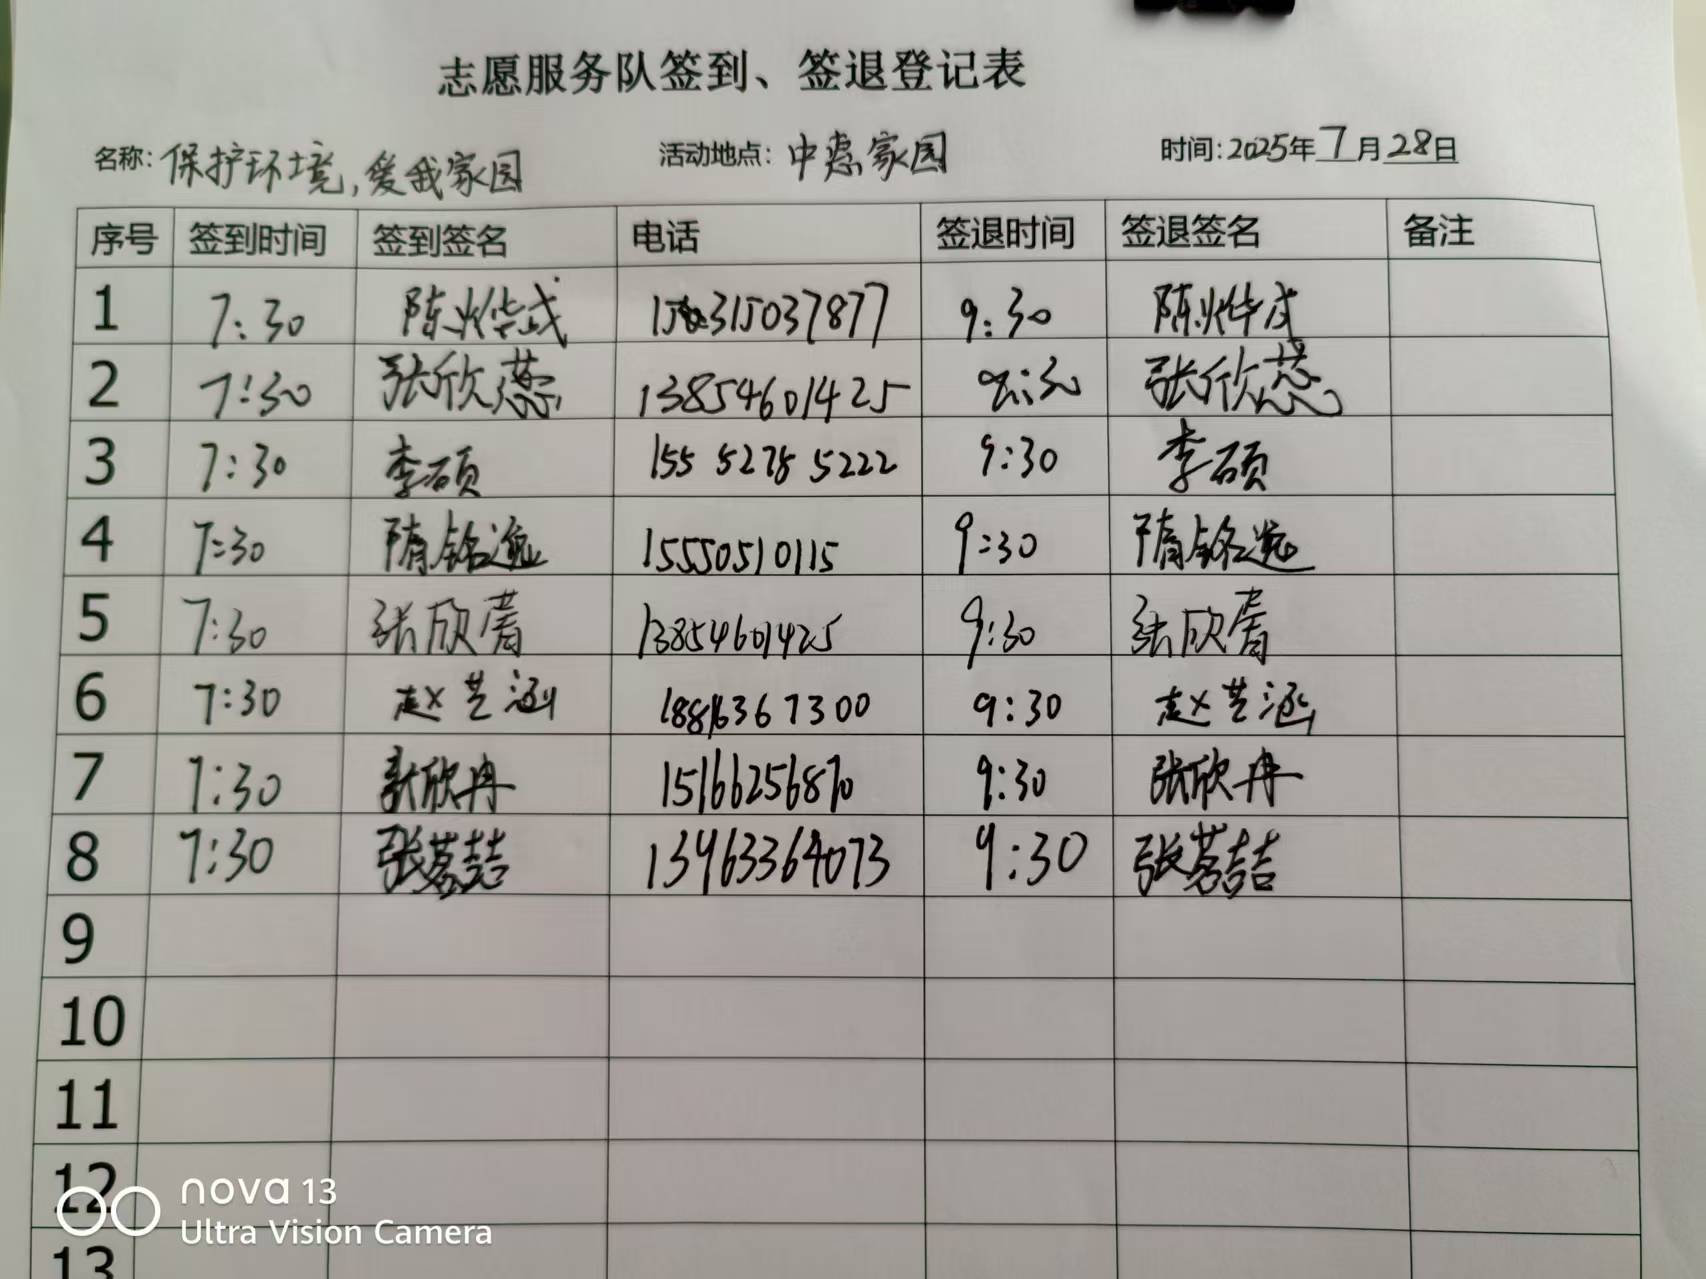 志愿服务队签到、签退登记表
名称：保护环境，爱我家园 活动地点：中惠家园 时间：2025年7月28日
序号 签到时间 签到签名 电话 签退时间 签退签名 备注
1 7:30 陈烨 9:30 陈烨
2 7:30 张欣蕊 13854601425 9:30 张欣蕊
3 7:30 李硕 155 5278 5222 9:30 李硕
4 7:30 隋铭逸 15550510115 9:30 隋铭逸
5 7:30 张欣 13854601425 9:30 张欣
6 7:30 赵艺涵 9:30 赵艺涵
7 7:30 张欣冉 15166256870 9:30 张欣冉
8 7:30 张茗喆 13963364073 9:30 张茗喆
9
10
11
12
nova 13
Ultra Vision Camera
13